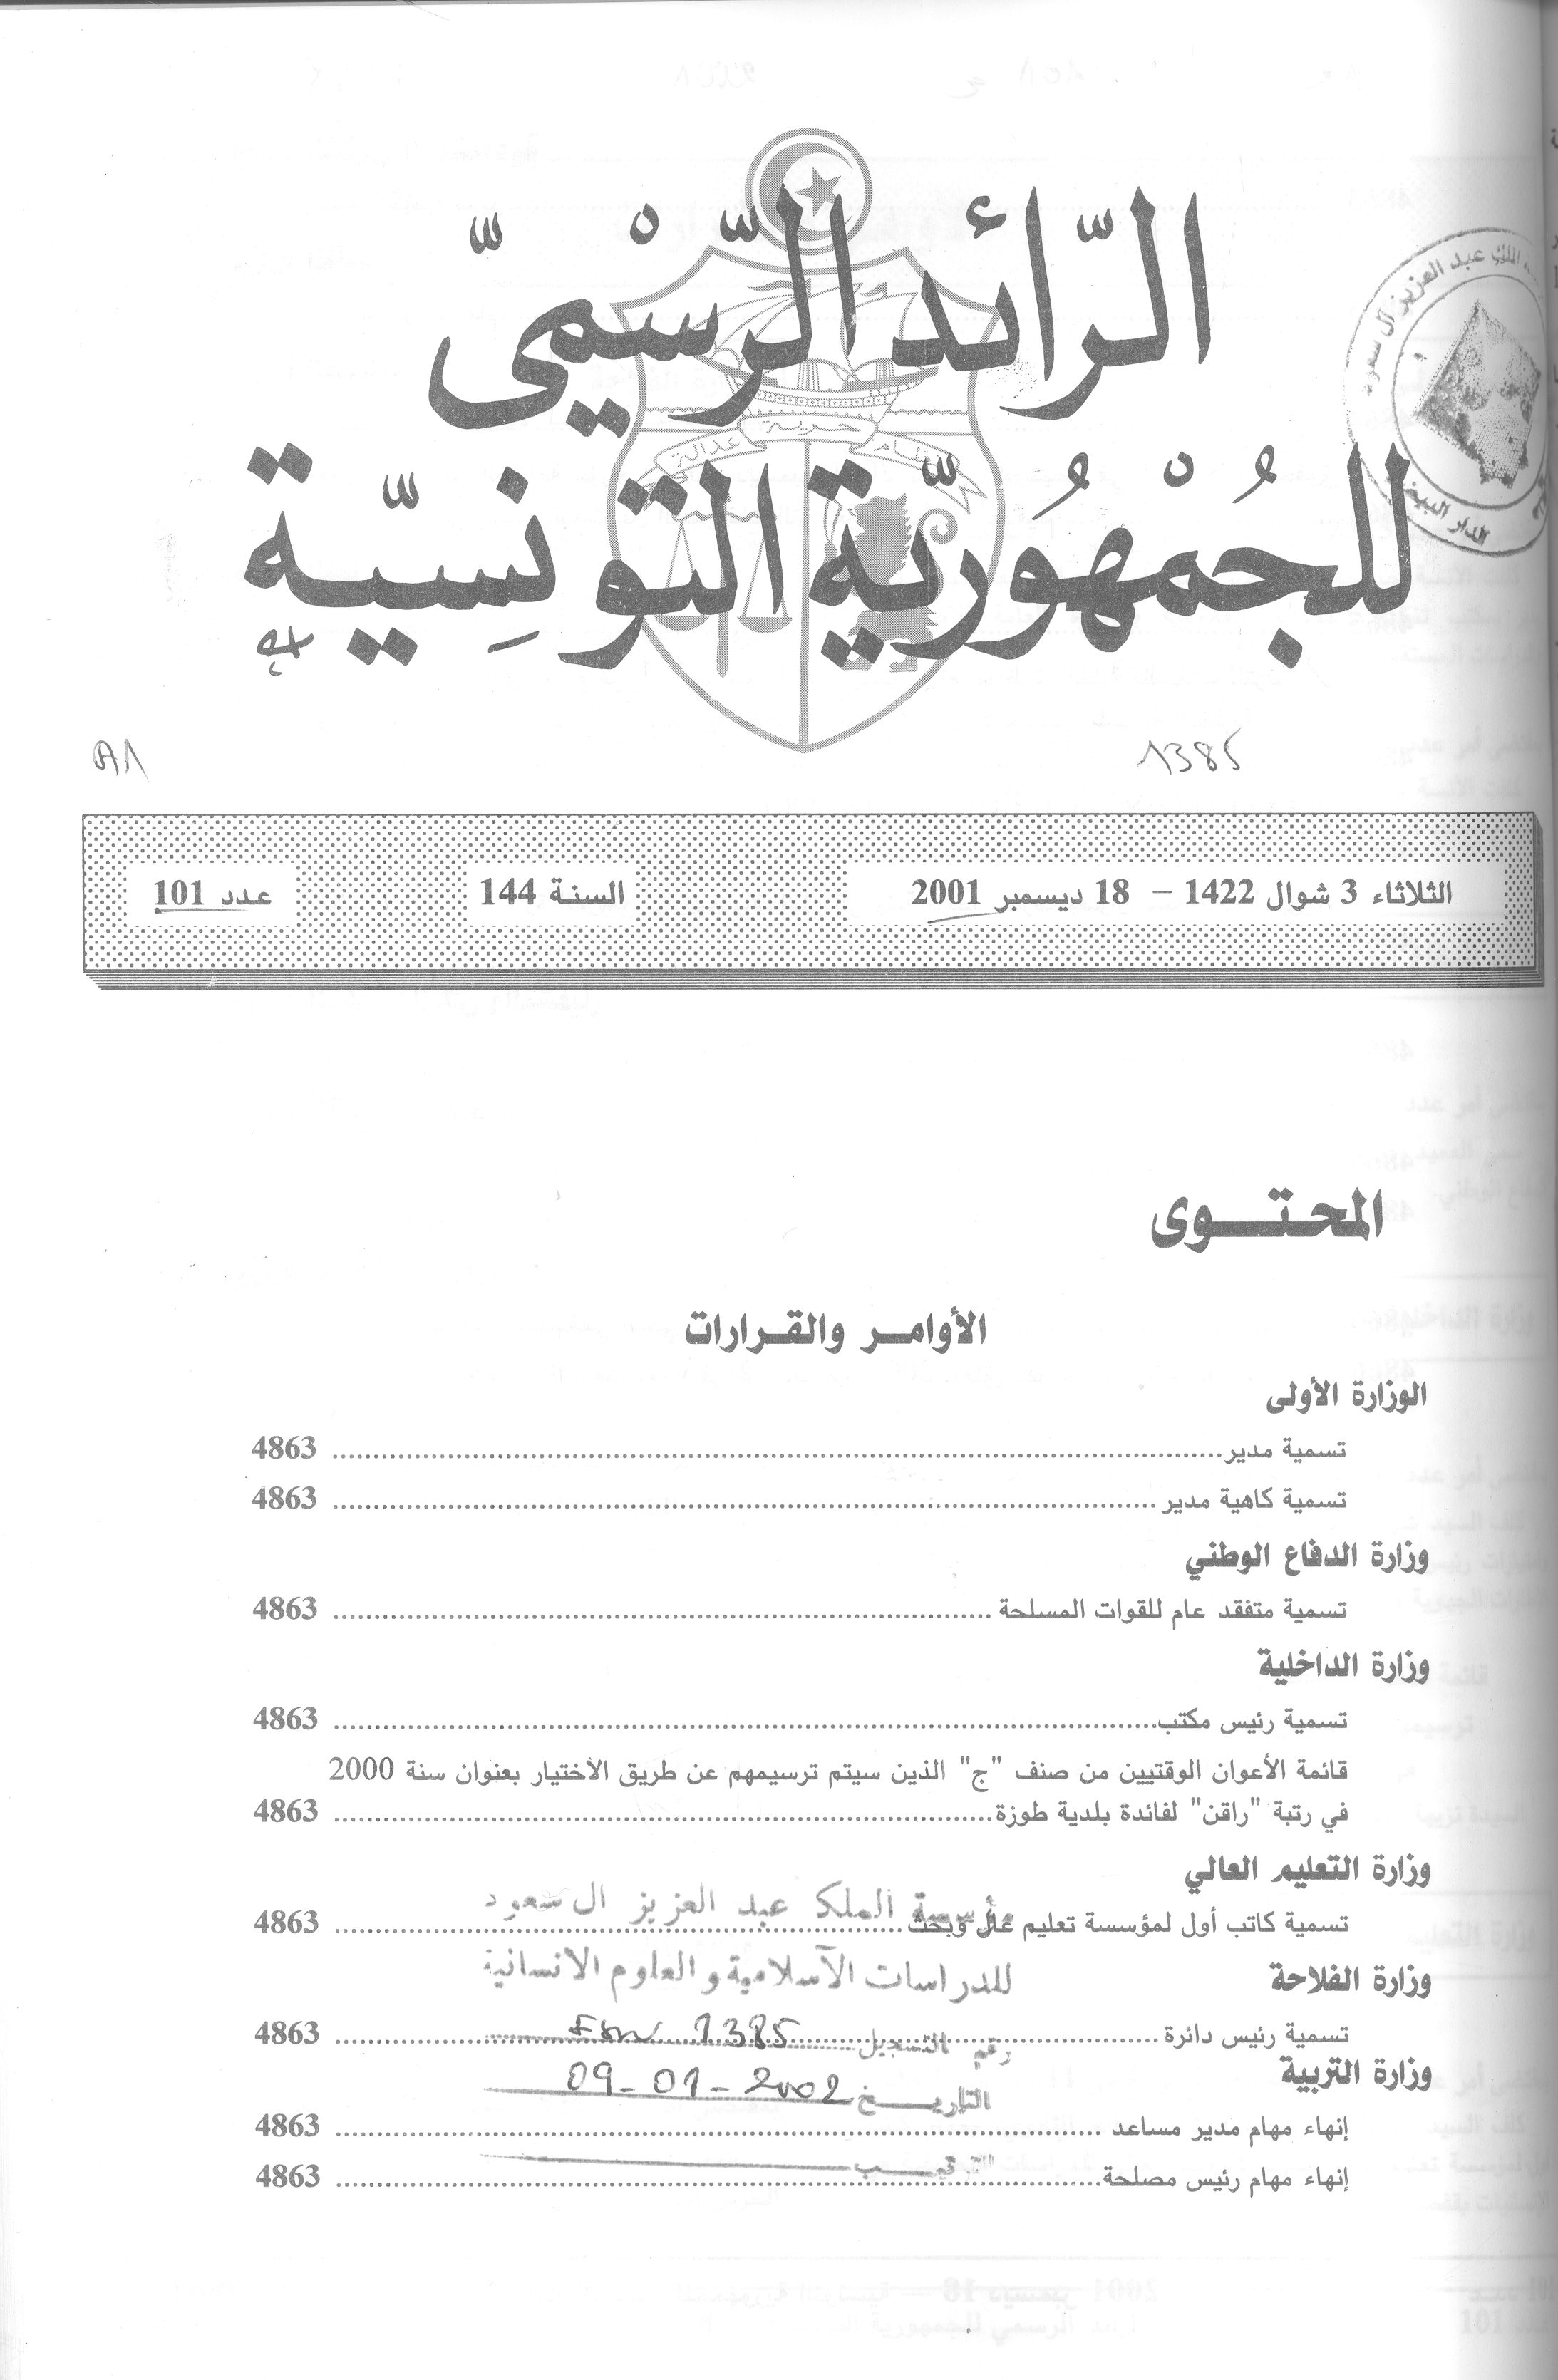 الرّائد الرّسْميّ
نظام حرية عدالة
للجُمْهُوريّة التونِسيّة
عبد العزيز آل سعود
الدار البيضاء
A1
1385
الثلاثاء 3 شوال 1422 – 18 ديسمبر 2001
السنة 144
عدد 101
المحتوى
الأوامر والقرارات
الوزارة الأولى
تسمية مدير ........ 4863
تسمية كاهية مدير ........ 4863
وزارة الدفاع الوطني
تسمية متفقد عام للقوات المسلحة ........ 4863
وزارة الداخلية
تسمية رئيس مكتب ........ 4863
قائمة الأعوان الوقتيين من صنف "ج" الذين سيتم ترسيمهم عن طريق الاختيار بعنوان سنة 2000
في رتبة "راقن" لفائدة بلدية طوزة ........ 4863
وزارة التعليم العالي
مؤسسة الملك عبد العزيز ال سعود
تسمية كاتب أول لمؤسسة تعليم عال وبحث ........ 4863
للدراسات الآسلامية و العلوم الانسانية
وزارة الفلاحة
تسمية رئيس دائرة ........ 4863
رقم التسجيل 1385
وزارة التربية
التاريخ 09-01-2002
إنهاء مهام مدير مساعد ........ 4863
إنهاء مهام رئيس مصلحة ........ 4863